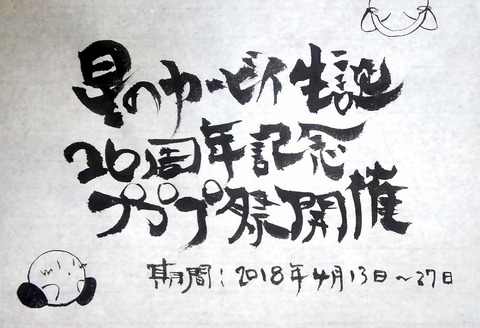 星のカービィ生誕
26周年記念
プププ祭開催
期間:2018年4月13日~27日